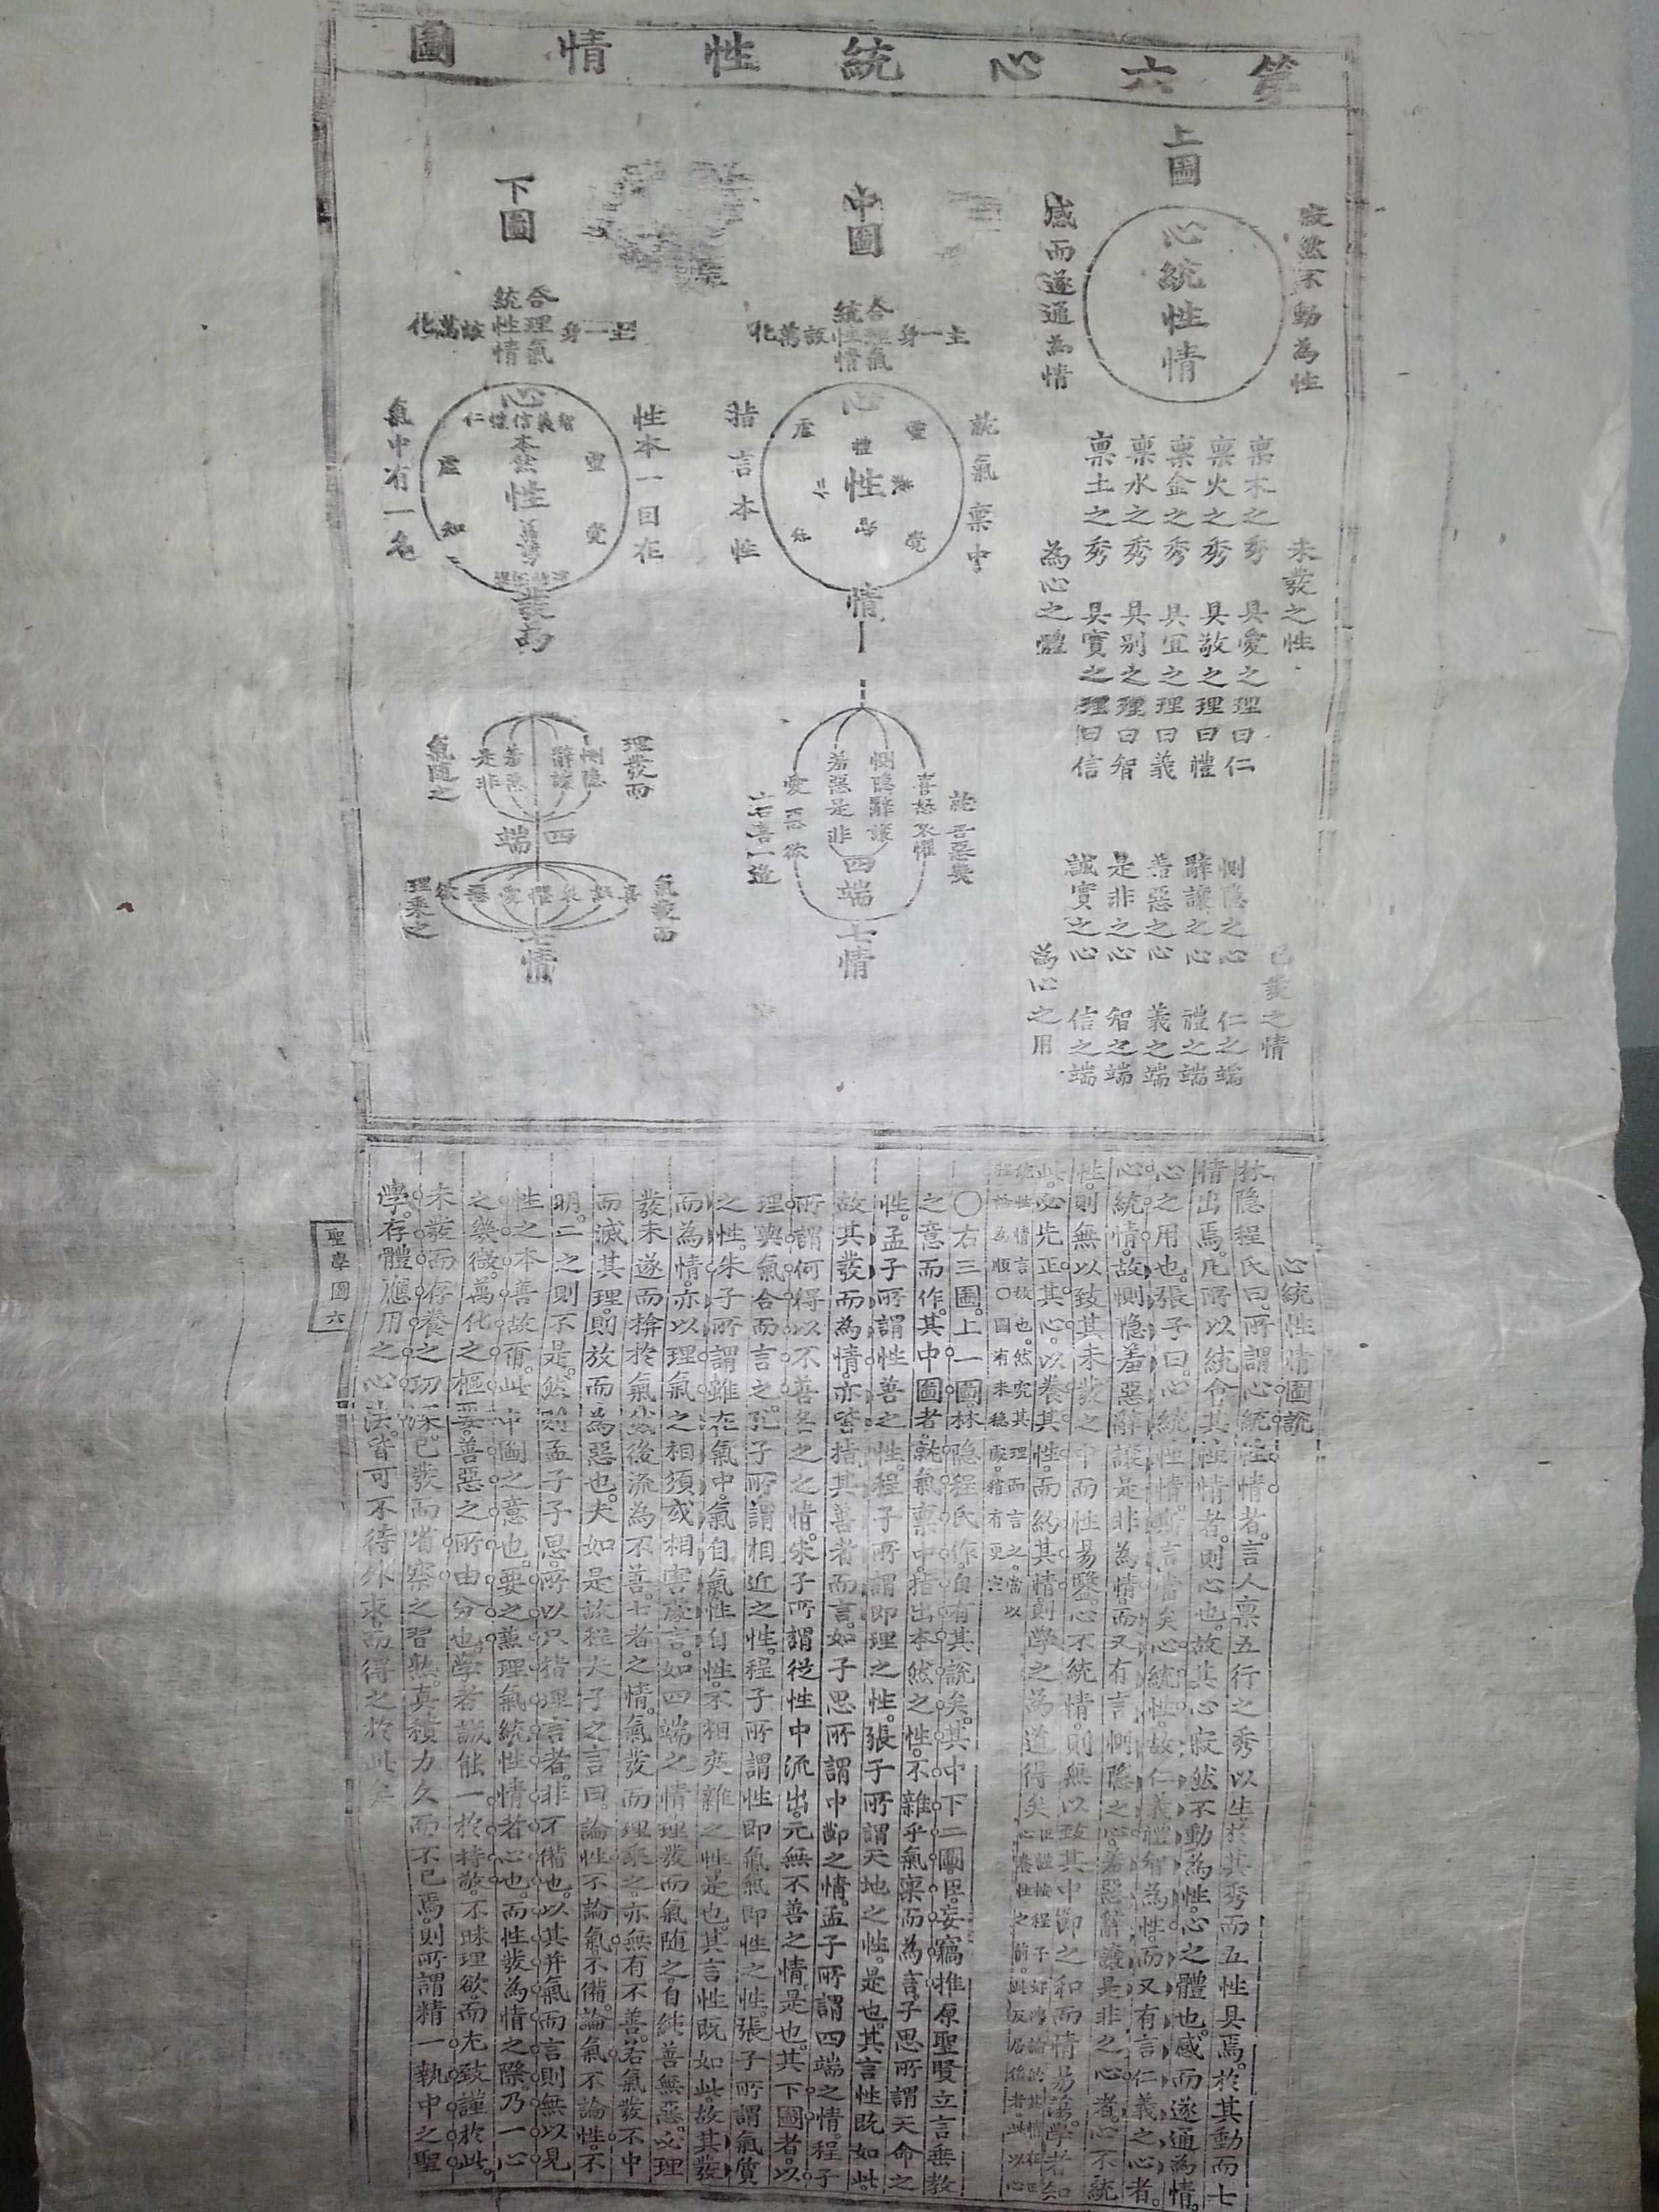 第六心統性情圖
上圖
寂然不動為性
心統性情
感而遂通為情
未發之性
稟木之秀 具愛之理曰仁
稟火之秀 具敬之理曰禮
稟金之秀 具宜之理曰義
稟水之秀 具別之理曰智
稟土之秀 具實之理曰信
為心之體
已發之情
惻隐之心 仁之端
辭讓之心 禮之端
羞惡之心 義之端
是非之心 智之端
誠實之心 信之端
為心之用
中圖
合理氣
統性情
主一身
該萬化
心
就氣稟中
靈
覺
禮
性
仁
虛
指言本性
情
喜怒哀懼
惻隐辭讓
羞惡是非
愛惡欲
四端
七情
下圖
合理氣
統性情
主一身
該萬化
心
性本一因在
智義信禮仁
本然
性
靈
覺
虛
知
氣中有二名
發為
理發而
惻隐
辭讓
羞惡
是非
氣隨之
四端
氣發而
喜怒哀懼愛惡欲
理乘之
七情
心統性情圖說
林隐程氏曰所謂心統性情者言人稟五行之秀以生於其秀而五性具焉於其動而七
情出焉凡所以統會其性情者則心也故其心寂然不動為性心之體也感而遂通為情
心之用也張子曰心統性情斯言當矣心統性故仁義禮智為性而又有言仁義之心者
心統情故惻隐羞惡辭讓是非為情而又有言惻隐之心羞惡辭讓是非之心者心不統
性則無以致其未發之中而性易鑿心不統情則無以致其中節之和而情易蕩學者知
此必先正其心以養其性而約其情則學之為道得矣
〇右三圖上一圖林隐程氏作自有其說矣其中下二圖臣妄竊推原聖賢立言垂教
之意而作其中圖者就氣稟中指出本然之性不雜乎氣稟而為言子思所謂天命之
性孟子所謂性善之性程子所謂即理之性張子所謂天地之性是也其言性既如此
故其發而為情亦皆指其善者而言如子思所謂中節之情孟子所謂四端之情程子
所謂何得以不善名之之情朱子所謂從性中流出元無不善之情是也其下圖者以
理與氣合而言之孔子所謂相近之性程子所謂性即氣氣即性之性張子所謂氣質
之性朱子所謂雖在氣中氣自氣性自性不相夾雜之性是也其言性既如此故其發
而為情亦以理氣之相須或相害處言如四端之情理發而氣隨之自純善無惡必理
發未遂而揜於氣然後流為不善七者之情氣發而理乘之亦無有不善若氣發不中
而滅其理則放而為惡也夫如是故程夫子之言曰論性不論氣不備論氣不論性不
明二之則不是然則孟子子思所以只指理言者非不備也以其并氣而言則無以見
性之本善故爾此中圖之意也要之兼理氣統性情者心也而性發為情之際乃一心
之幾微萬化之樞要善惡之所由分也學者誠能一於持敬不昧理欲而尤致謹於此
未發而存養之功深已發而省察之習熟真積力久而不已焉則所謂精一執中之聖
學存體應用之心法皆可不待外求而得之於此矣
聖學圖六